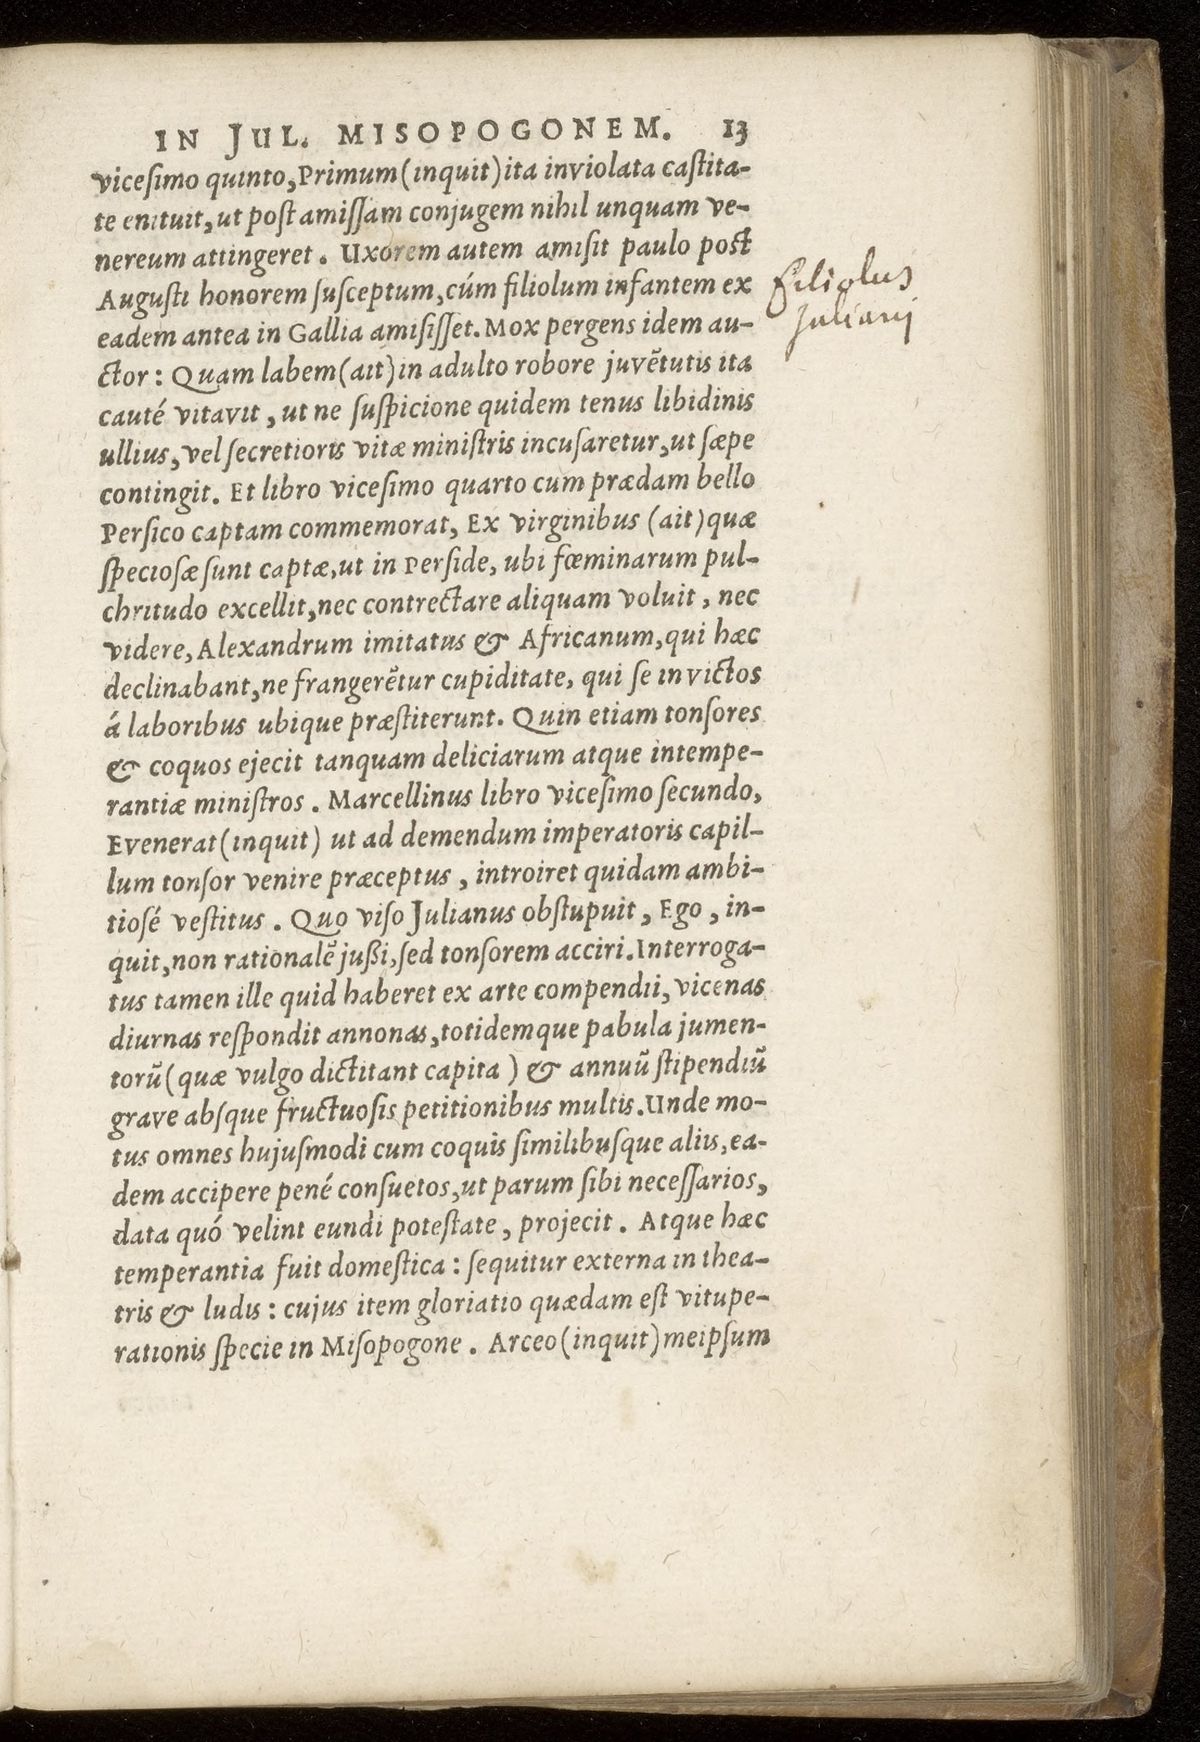 IN JUL. MISOPOGONEM. 13
vicesimo quinto, Primum (inquit) ita inviolata castita-
te enituit, ut post amissam conjugem nihil unquam ve-
nereum attingeret. Uxorem autem amisit paulo post
Augusti honorem susceptum, cúm filiolum infantem ex
eadem antea in Gallia amisisset. Mox pergens idem au-
ctor: Quam labem (ait) in adulto robore juvẽtutis ita
cauté vitavit, ut ne suspicione quidem tenus libidinis
ullius, vel secretioris vitæ ministris incusaretur, ut sæpe
contingit. Et libro vicesimo quarto cum prædam bello
Persico captam commemorat, Ex virginibus (ait) quæ
speciosæ sunt captæ, ut in Perside, ubi fœminarum pul-
chritudo excellit, nec contrectare aliquam voluit, nec
videre, Alexandrum imitatus & Africanum, qui hæc
declinabant, ne frangerẽtur cupiditate, qui se invictos
á laboribus ubique præstiterunt. Quin etiam tonsores
& coquos ejecit tanquam deliciarum atque intempe-
rantiæ ministros. Marcellinus libro vicesimo secundo,
Evenerat (inquit) ut ad demendum imperatoris capil-
lum tonsor venire præceptus, introiret quidam ambi-
tiosé vestitus. Quo viso Julianus obstupuit, Ego, in-
quit, non rationalẽ jußi, sed tonsorem acciri. Interroga-
tus tamen ille quid haberet ex arte compendii, vicenas
diurnas respondit annonas, totidemque pabula jumen-
torũ (quæ vulgo dictitant capita) & annuũ stipendiũ
grave absque fructuosis petitionibus multis. Unde mo-
tus omnes hujusmodi cum coquis similibusque aliis, ea-
dem accipere pené consuetos, ut parum sibi necessarios,
data quó velint eundi potestate, projecit. Atque hæc
temperantia fuit domestica: sequitur externa in thea-
tris & ludis: cujus item gloriatio quædam est vitupe-
rationis specie in Misopogone. Arceo (inquit) meipsum
filiolus
Juliani